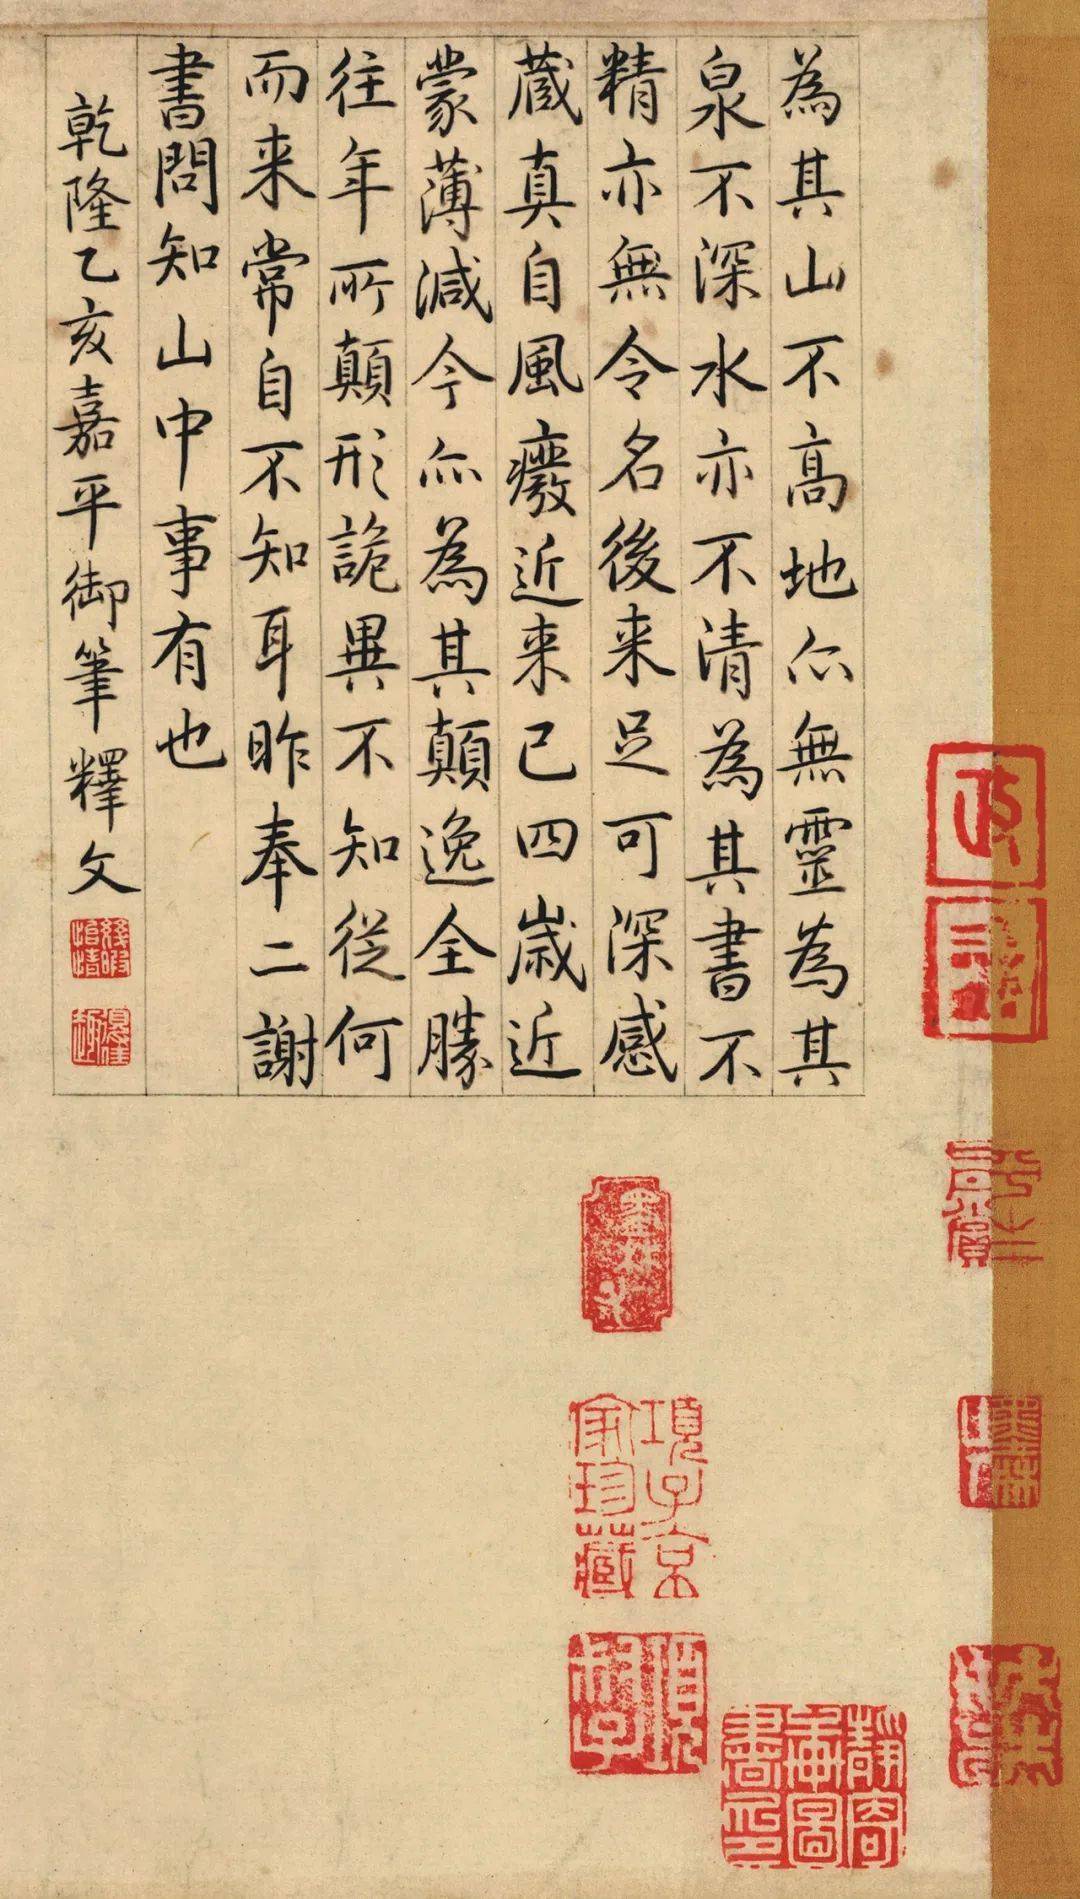 為其山不高地亦無靈為其
泉不深水亦不清為其書不
精亦無令名後来足可深感
蔵真自風癈近来已四歳近
蒙薄減今亦為其顛逸全勝
往年所顛形詭異不知從何
而来常自不知耳昨奉二謝
書問知山中事有也
乾隆乙亥嘉平御筆釋文
幾暇怡情
得佳趣
項子京家珍藏
靜寄軒圖書印